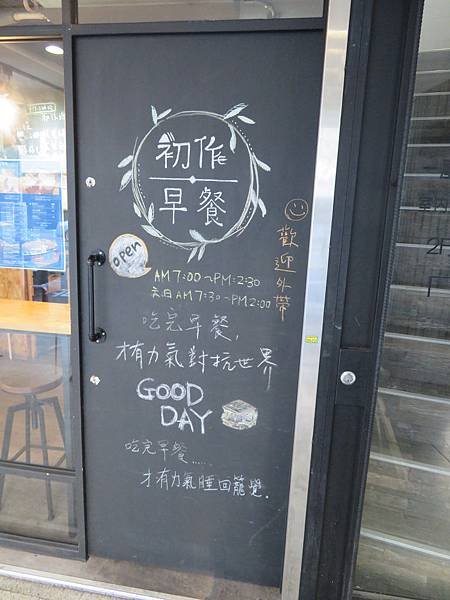 初作
早餐
open
AM 7:00~PM:2:30
六日AM 7:30~PM 2:00
歡迎外帶
吃完早餐,
才有力氣對抗世界
GOOD
DAY
吃完早餐......
才有力氣睡回籠覺.